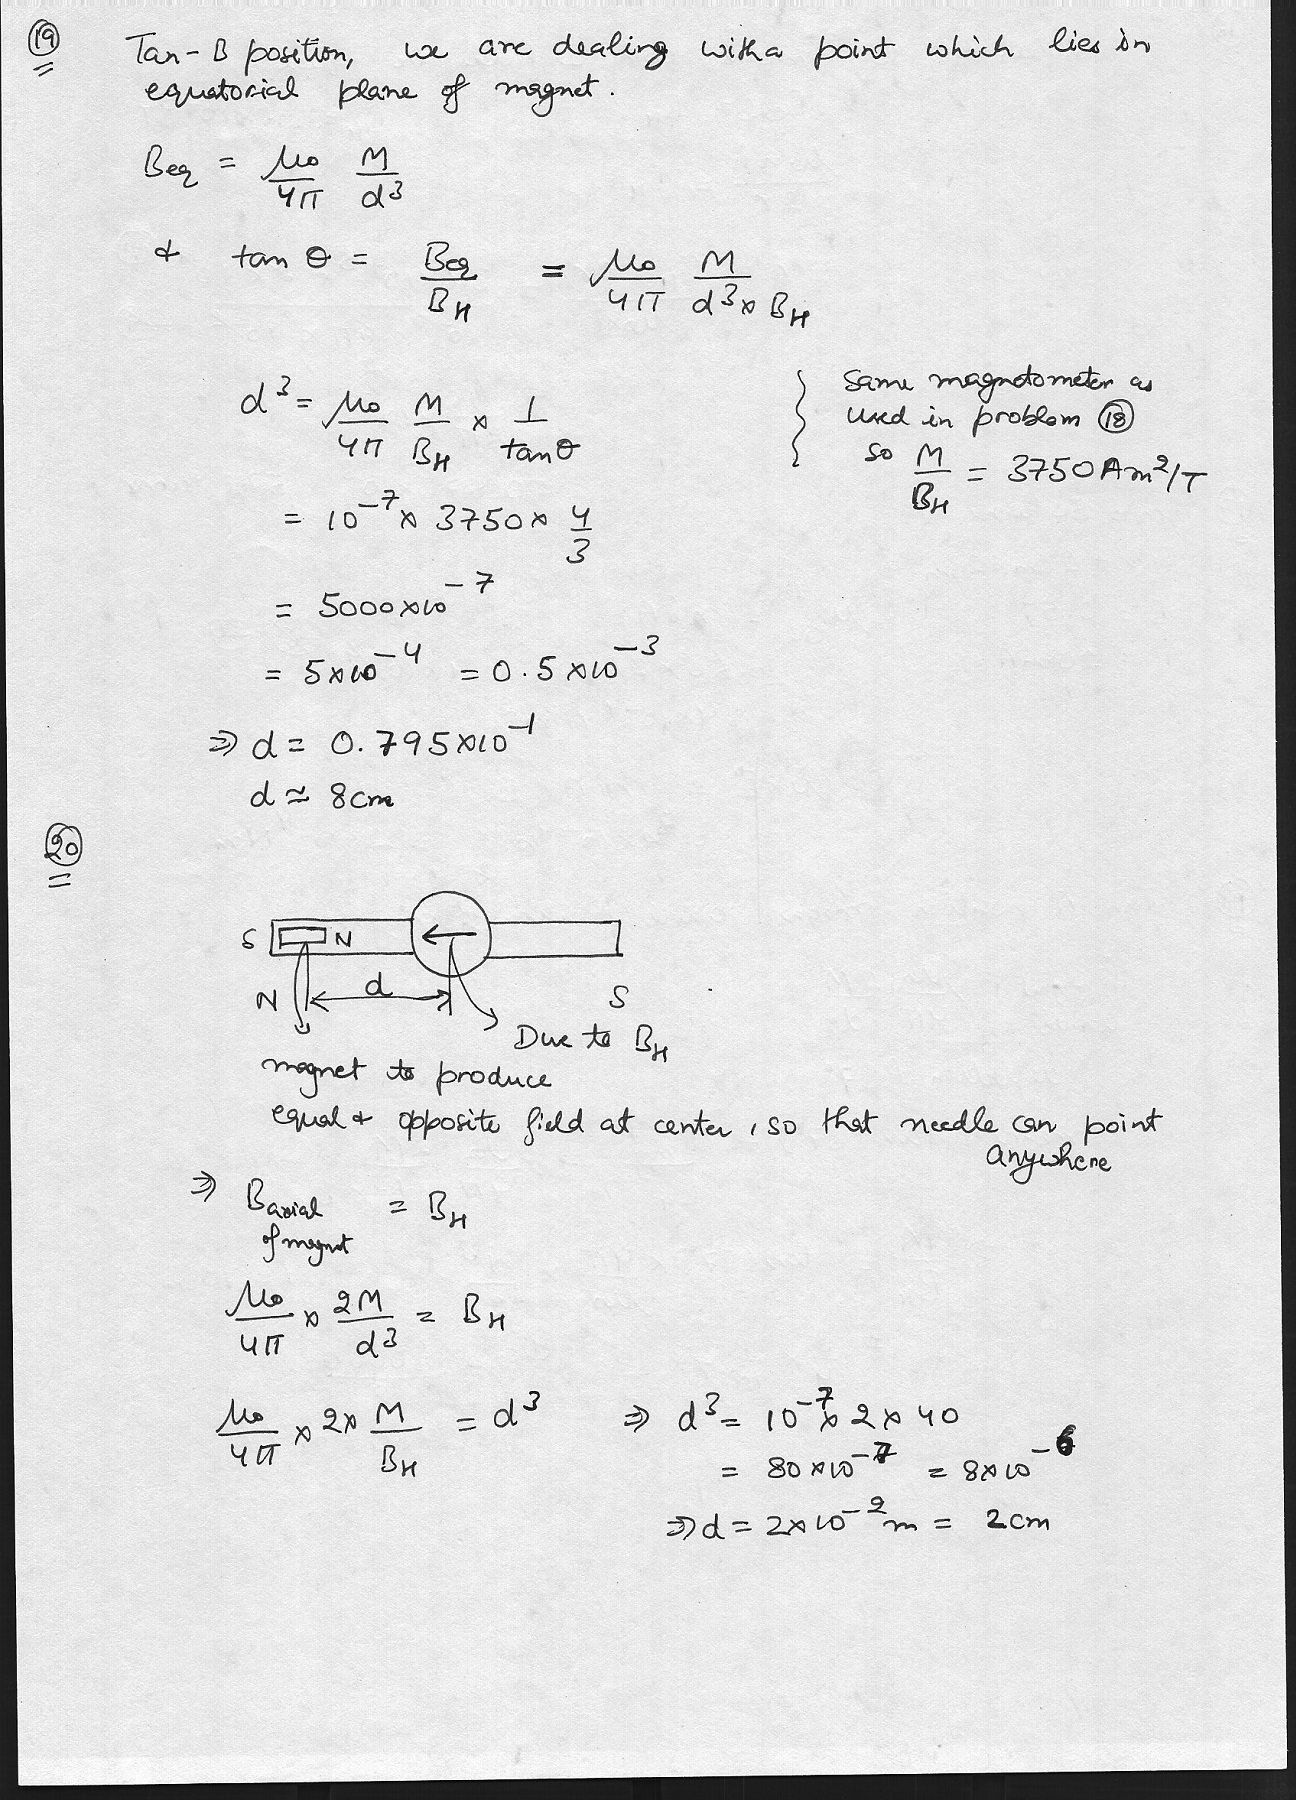 19
Tan-B position, we are dealing with a point which lies in
equatorial plane of magnet.
Beq = μ0/4π M/d³
& tan θ = Beq/BH = μ0/4π M/d³×BH
d³ = μ0/4π M/BH × 1/tanθ
Same magnetometer as
used in problem 18
so M/BH = 3750 Am²/T
= 10⁻⁷ × 3750 × 4/3
= 5000×10⁻⁷
= 5×10⁻⁴ = 0.5×10⁻³
⇒ d = 0.795×10⁻¹
d ≃ 8cm
20
S N
N d S
Due to BH
magnet to produce
equal & opposite field at center, so that needle can point
anywhere
⇒ Baxial = BH
of magnet
μ0/4π × 2M/d³ = BH
μ0/4π × 2× M/BH = d³ ⇒ d³ = 10⁻⁷ × 2 × 40
= 80×10⁻⁷ = 8×10⁻⁶
⇒ d = 2×10⁻² m = 2cm